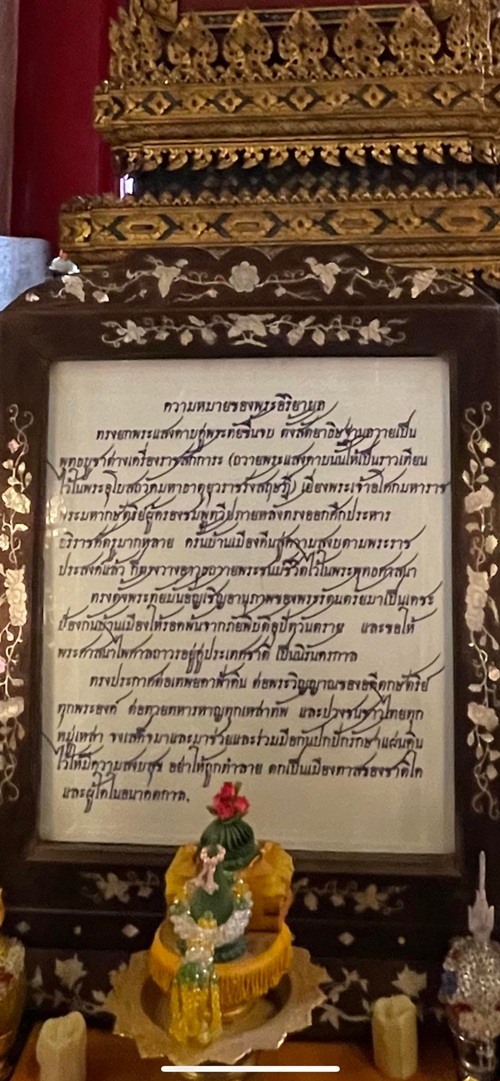 ความหมายของพระอิริยาบถ
ทรงยกพระแสงดาบคู่พระทัยขึ้นจบ ตั้งสัตยาธิษฐานถวายเป็น
พุทธบูชาต่างเครื่องราชสักการะ (ถวายพระแสงดาบนี้ให้เป็นราวเทียน
ไว้ในพระอุโบสถวัดมหาธาตุยุวราชรังสฤษฎิ์) เยี่ยงพระเจ้าอโศกมหาราช
พระมหากษัตริย์ผู้ครองชมพูทวีปภายหลังทรงออกศึกประหาร
อริราชศัตรูมากหลาย ครั้นบ้านเมืองคืนสู่ความสงบตามพระราช
ประสงค์แล้ว ก็ทรงวางอาวุธถวายพระชนม์ชีวิตไว้ในพระพุทธศาสนา
ทรงตั้งพระทัยมั่นอัญเชิญอานุภาพของพระรัตนตรัยมาเป็นเดชะ
ป้องกันบ้านเมืองให้รอดพ้นจากภัยพิบัติอุปัทวันตราย และขอให้
พระศาสนาไพศาลถาวรอยู่คู่ประเทศชาติ เป็นนิรันตรกาล
ทรงประกาศต่อเทพยดาฟ้าดิน ต่อพระวิญญาณของอดีตกษัตริย์
ทุกพระองค์ ต่อทวยทหารหาญทุกเหล่าทัพ และปวงชนชาวไทยทุก
หมู่เหล่า จงเสด็จมาและมาช่วยและร่วมมือกันปกปักรักษาแผ่นดิน
ไว้ให้มีความสงบสุข อย่าให้ถูกทำลาย ตกเป็นเมืองทาสของชาติใด
และผู้ใดในอนาคตกาล.